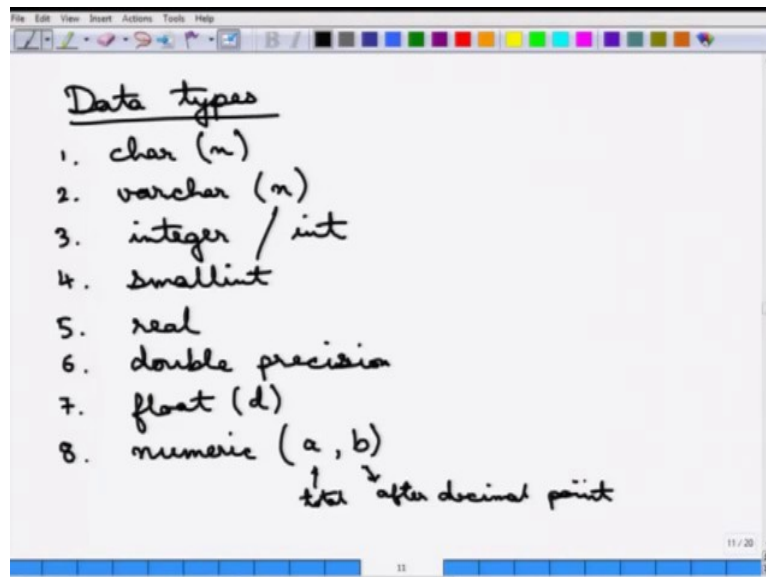 File Edit View Insert Actions Tools Help
B I
Data types
1. char (n)
2. varchar (n)
3. integer / int
4. smallint
5. real
6. double precision
7. float (d)
8. numeric (a, b)
total after decimal point
11 / 20
11